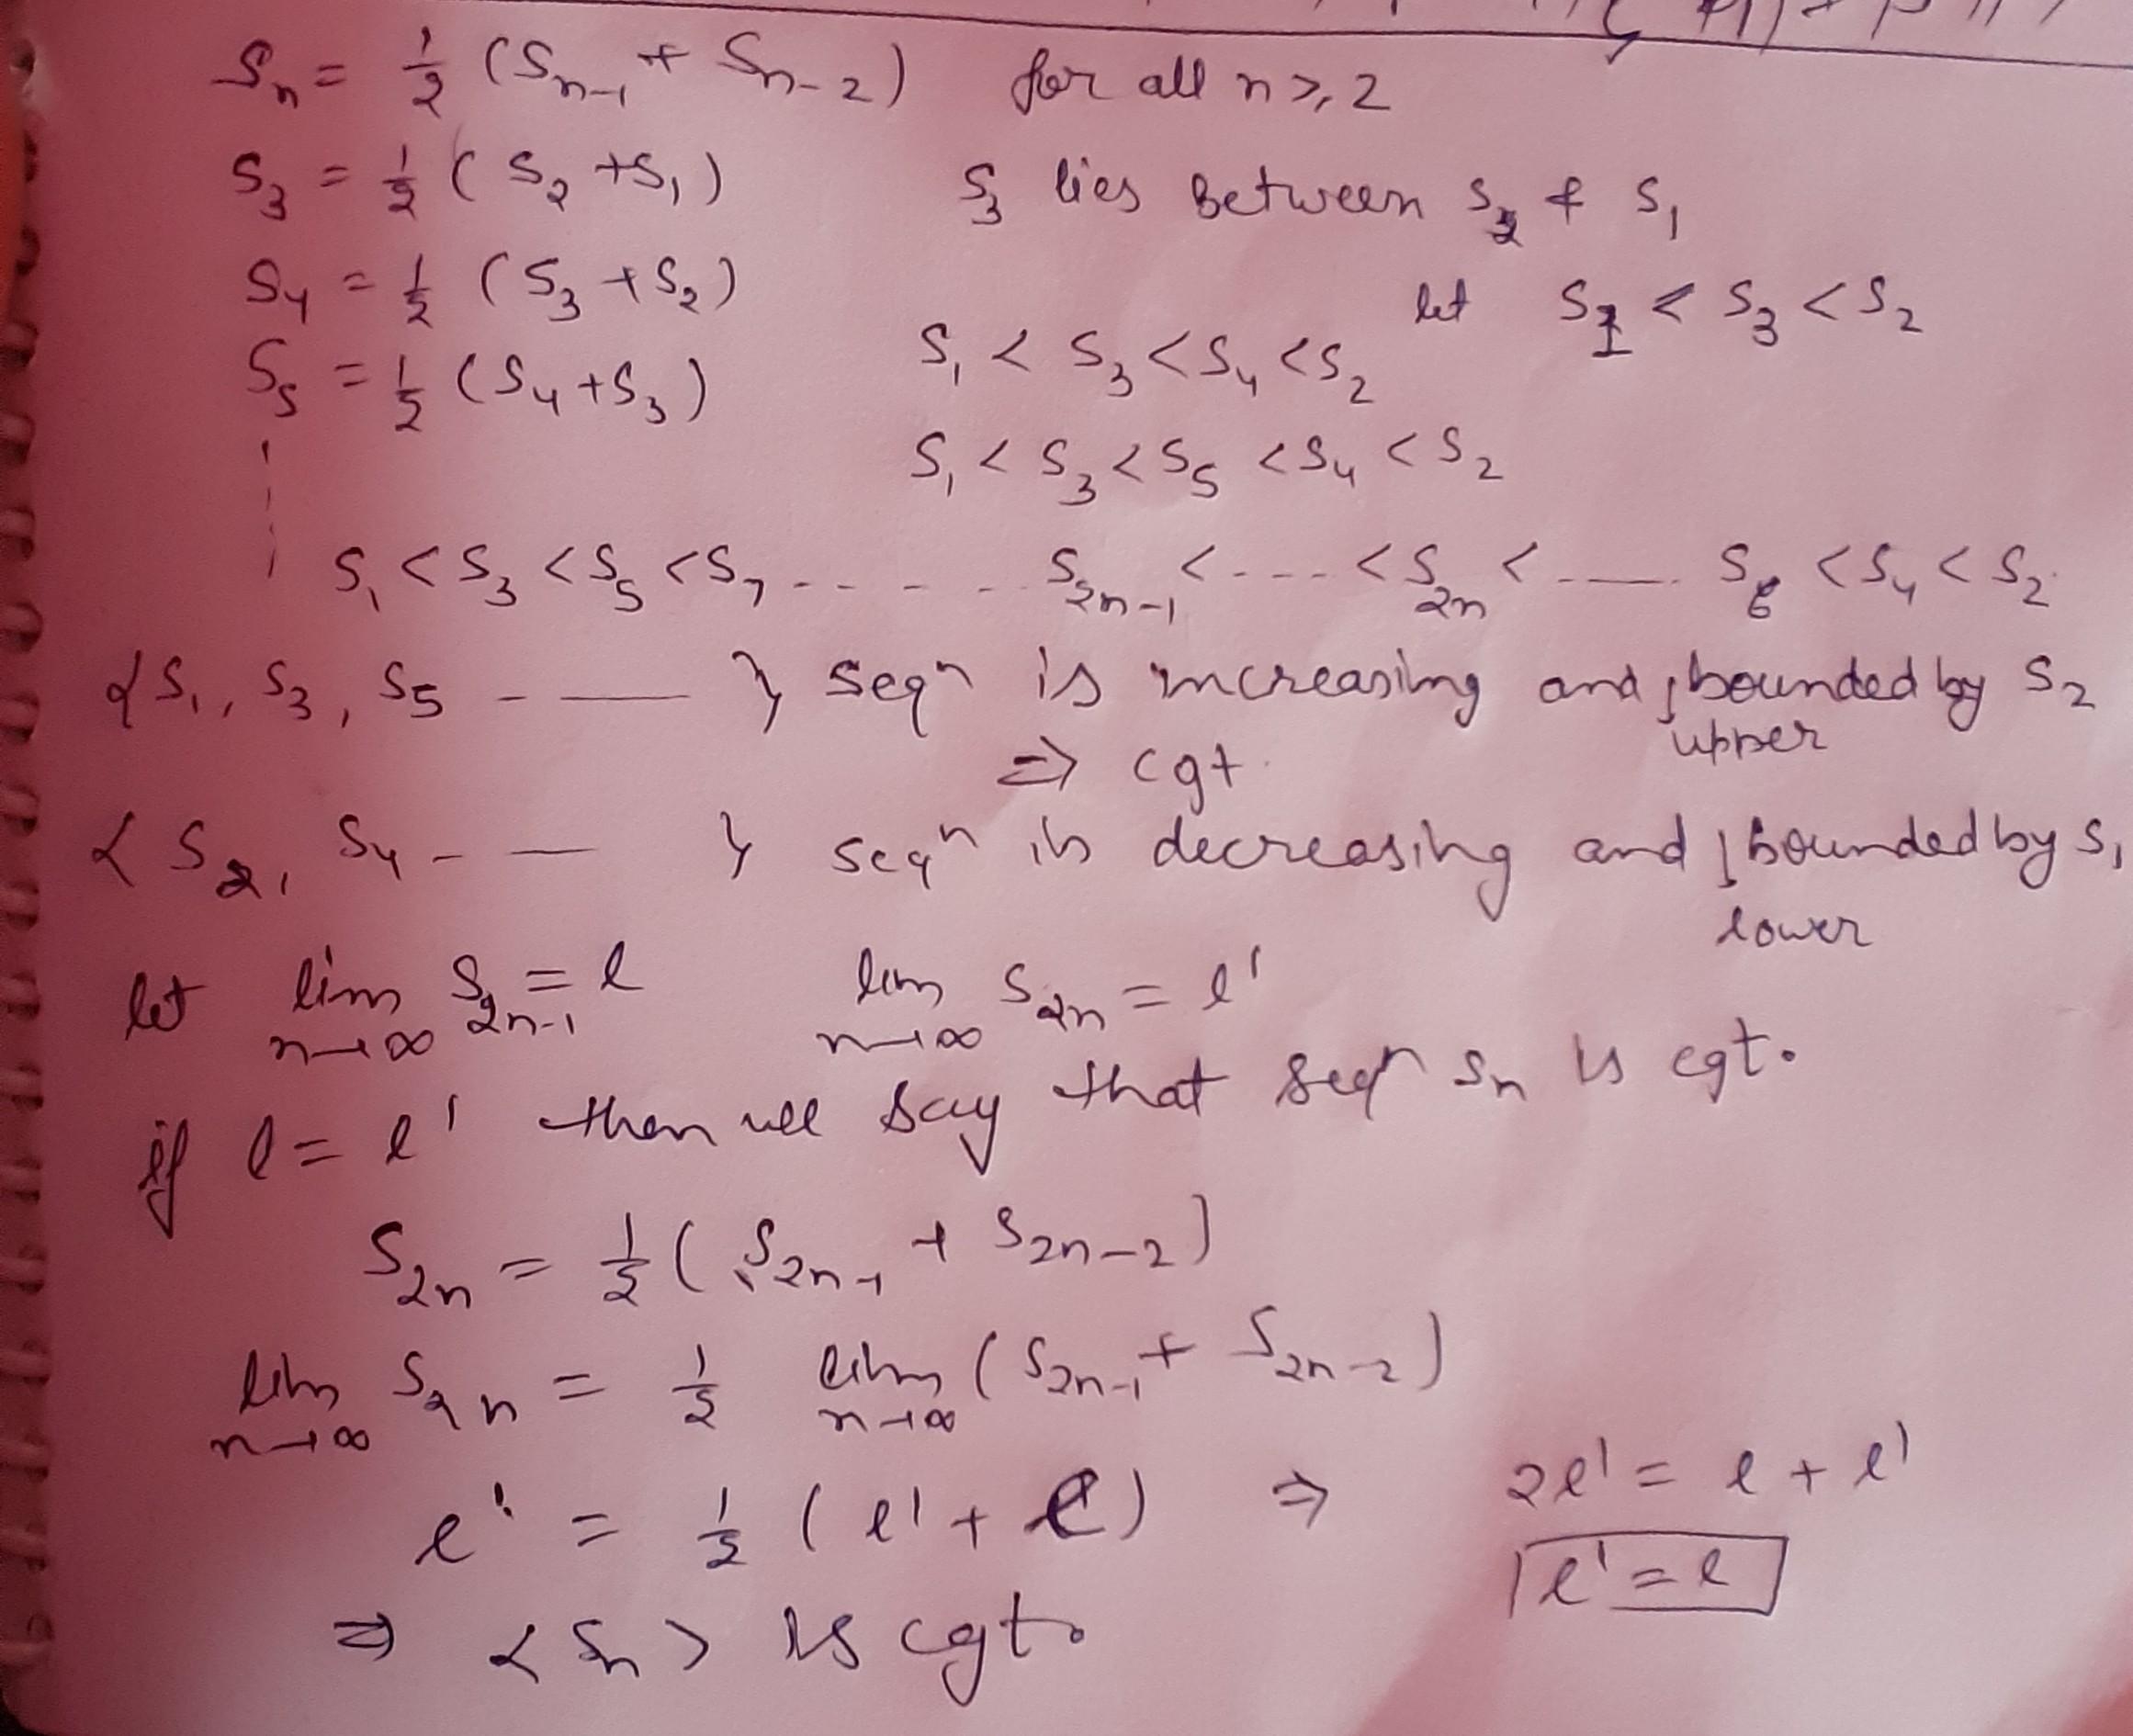 Sn = 1/2 (Sn-1 + Sn-2) for all n ≥ 2
S3 = 1/2 (S2 + S1) S3 lies between S2 & S1
S4 = 1/2 (S3 + S2) let S1 < S3 < S2
S5 = 1/2 (S4 + S3) S1 < S3 < S4 < S2
S1 < S3 < S5 < S4 < S2
S1 < S3 < S5 < S7 ------ S2n-1 < ---- < S2n < ---- S6 < S4 < S2
{S1, S3, S5 ---- } seqn is increasing and bounded by S2
upper
⇒ cgt.
{S2, S4 --- } seqn is decreasing and bounded by S1
lower
let lim n→∞ S2n-1 = l lim n→∞ S2n = l'
if l = l' then we say that seqn Sn is cgt.
S2n = 1/2 (S2n-1 + S2n-2)
lim n→∞ S2n = 1/2 lim n→∞ (S2n-1 + S2n-2)
l' = 1/2 (l' + l) ⇒ 2l' = l + l'
l' = l
⇒ <Sn> is cgt.